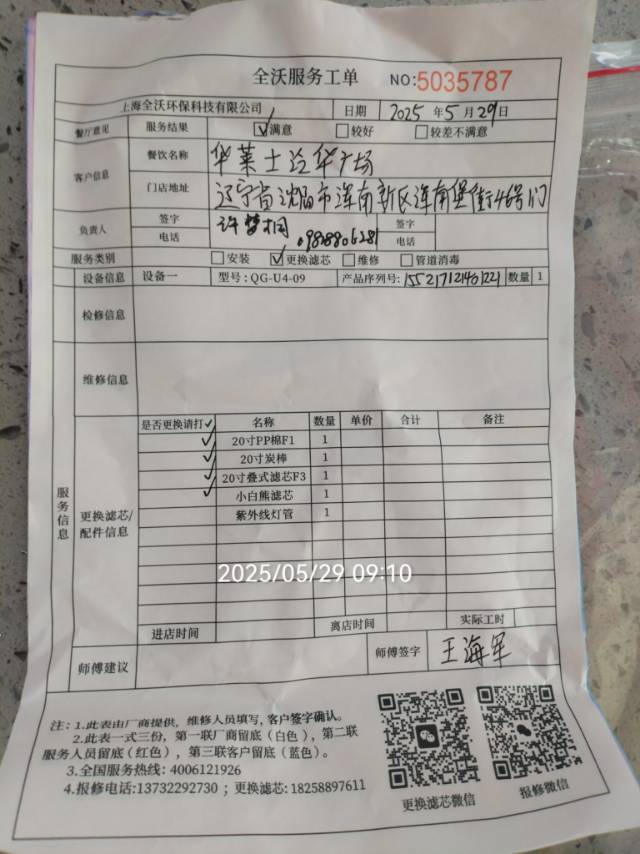 全沃服务工单 NO:5035787
上海全沃环保科技有限公司 日期 2025年5月29日
餐厅意见 服务结果 ☑满意 □较好 □较差不满意
客户信息 餐饮名称 华莱士泛华广场
门店地址 辽宁省沈阳市浑南新区浑南堡街46号门
负责人 签字 许梦桐 签字
电话 电话
服务类别 □安装 ☑更换滤芯 □维修 □管道消毒
设备信息 设备一 型号:QG-U4-09 产品序列号: 数量 1
检修信息
维修信息
服务信息
更换滤芯/配件信息
是否更换请打✓ 名称 数量 单价 合计 备注
✓ 20寸PP棉F1 1
✓ 20寸炭棒 1
✓ 20寸叠式滤芯F3 1
✓ 小白熊滤芯 1
紫外线灯管 1
2025/05/29 09:10
进店时间 离店时间 实际工时
师傅建议 师傅签字 王海军
注:1.此表由厂商提供,维修人员填写,客户签字确认。
2.此表一式三份,第一联厂商留底(白色),第二联
服务人员留底(红色),第三联客户留底(蓝色)。
3.全国服务热线:4006121926
4.报修电话:13732292730;更换滤芯:18258897611
更换滤芯微信 报修微信